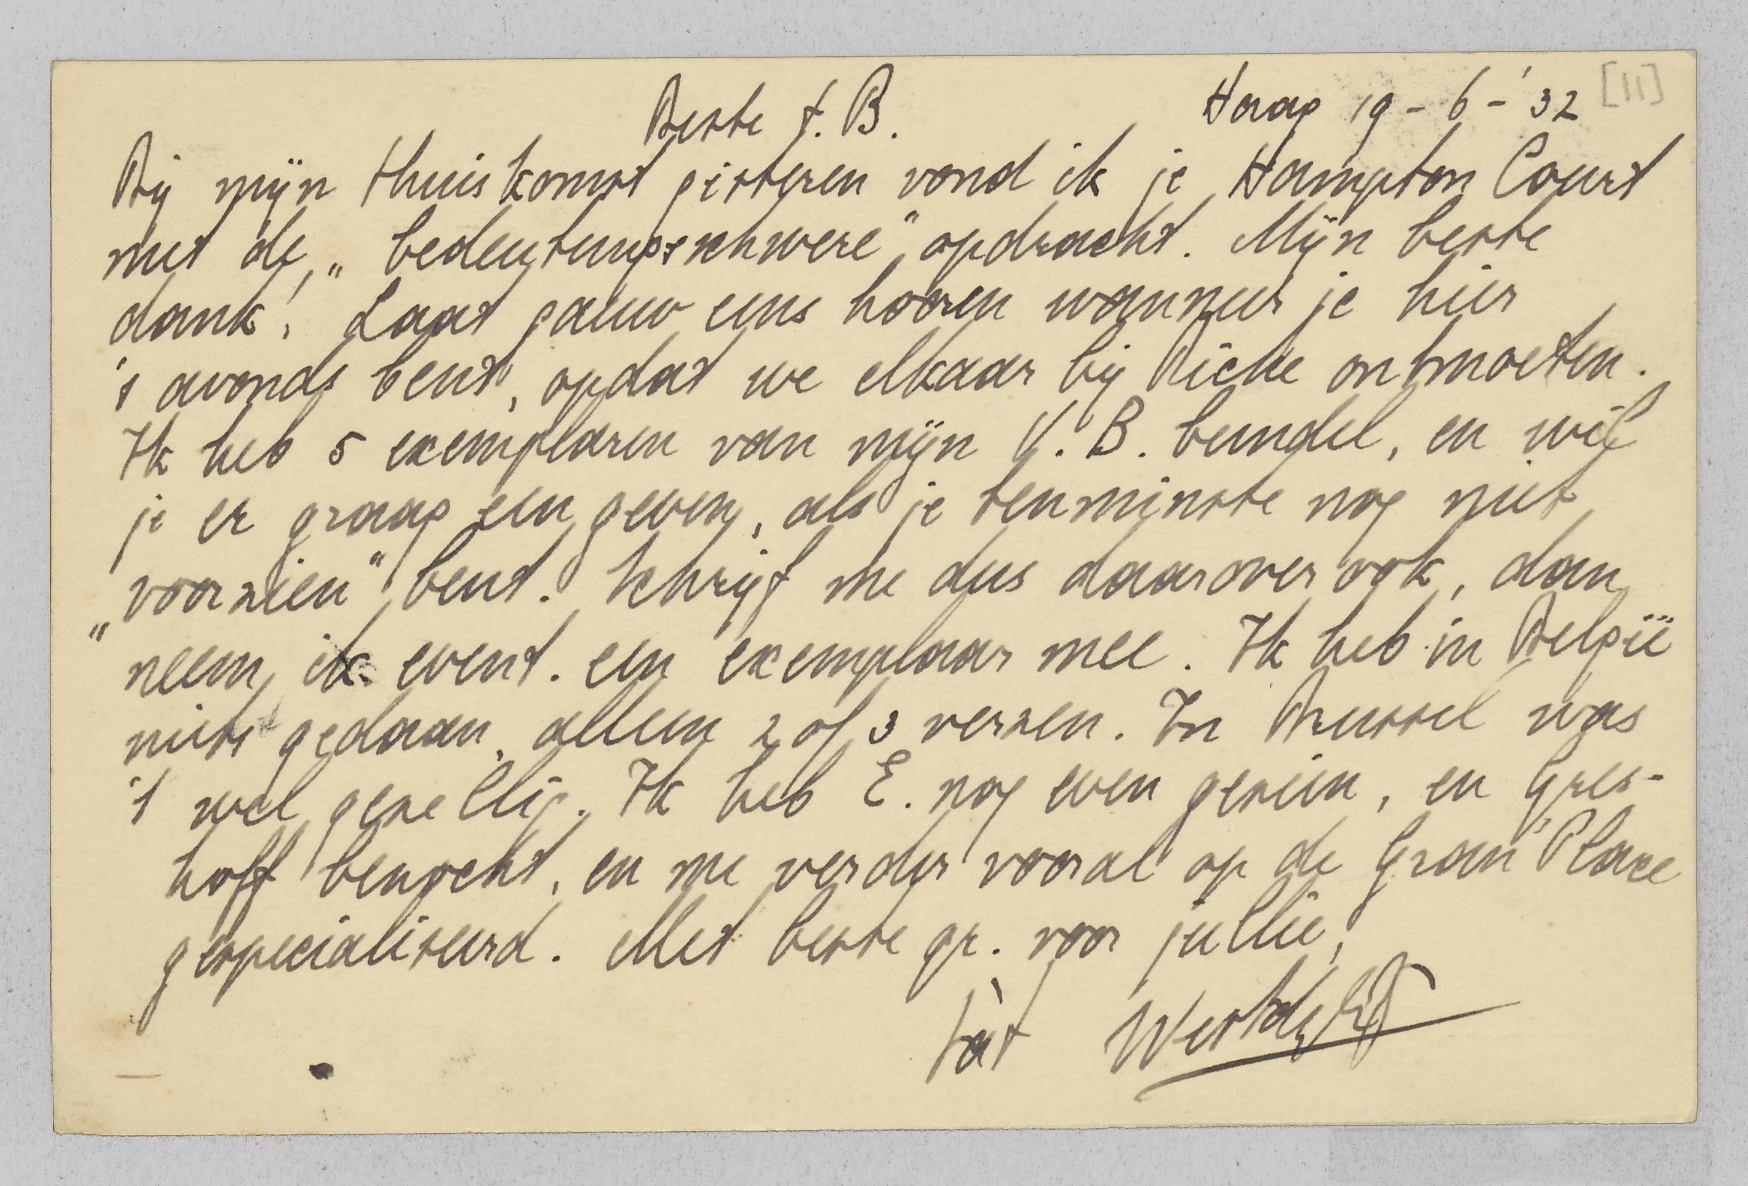 Haag 19-6-'32 [11]
Beste t. B.
Bij mijn thuiskomst gisteren vond ik je Hampton Court
met de „bedeutungsschwere" opdracht. Mijn beste
dank! Laat gauw eens hooren wanneer je hier
's avonds bent, opdat we elkaar bij Riche ontmoeten.
Ik heb 5 exemplaren van mijn V. B. bundel, en wil
je er graag een geven, als je tenminste nog niet
„voorzien" bent. Schrijf me dus daarover ook, dan
neem ik event. een exemplaar mee. Ik heb in België
niets gedaan, alleen 2 of 3 verzen. In Brussel was
't wel gezellig. Ik heb E. nog even gezien, en Gres-
hoff bezocht, en me verder vooral op de Gran' Place
gespecialiseerd. Met beste gr. voor jullie,
tàt